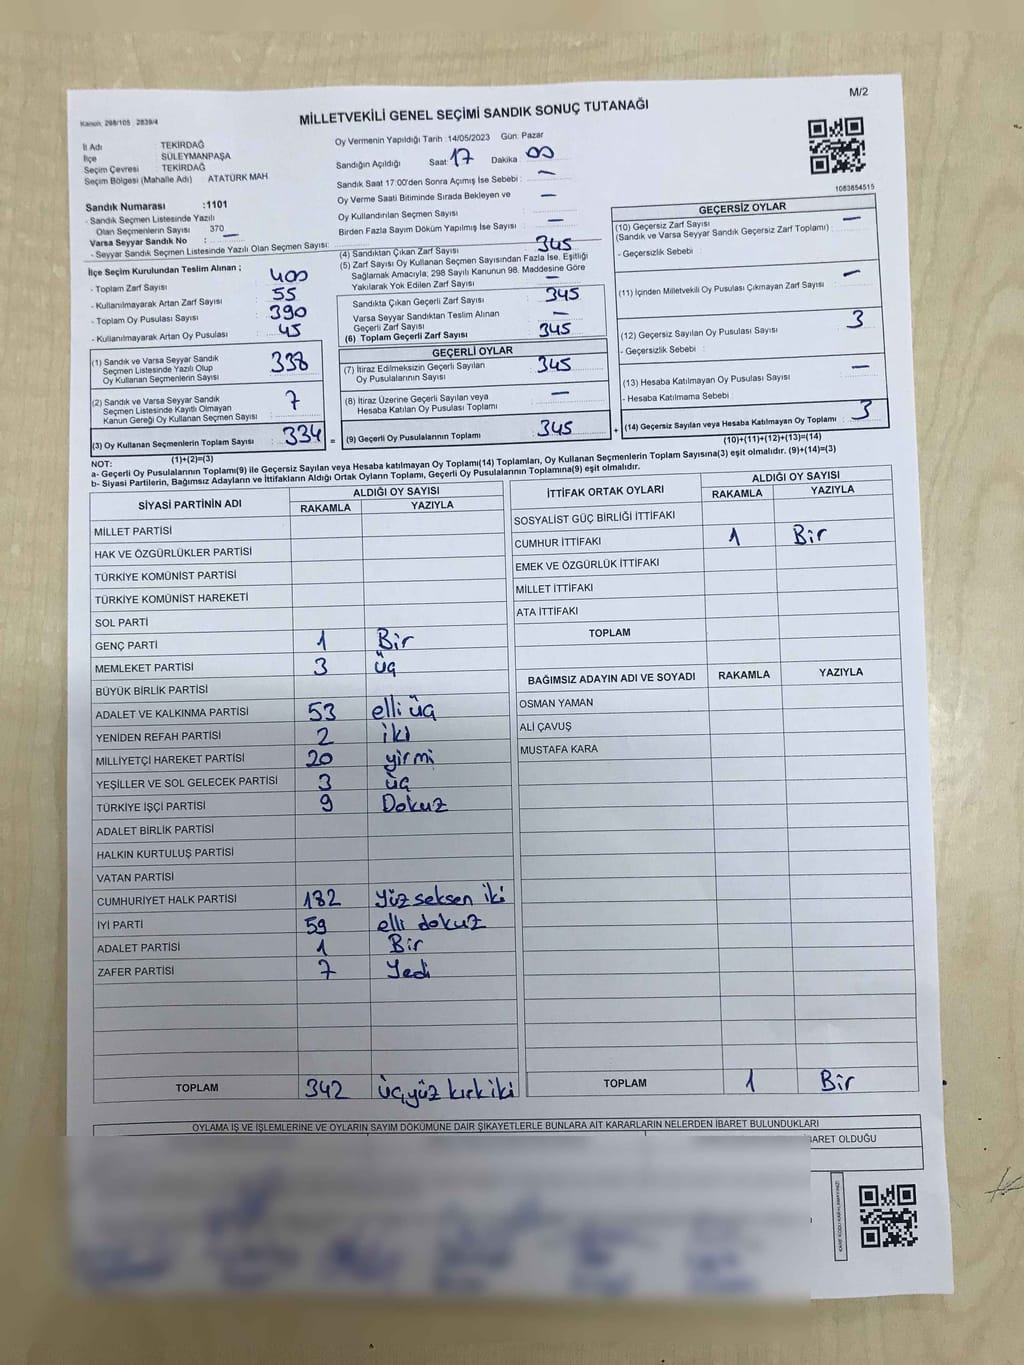 M/2
Kanun: 298/105 2839/4
MİLLETVEKİLİ GENEL SEÇİMİ SANDIK SONUÇ TUTANAĞI
İl Adı : TEKİRDAĞ
İlçe : SÜLEYMANPAŞA
Seçim Çevresi : TEKİRDAĞ
Seçim Bölgesi (Mahalle Adı) : ATATÜRK MAH
Sandık Numarası :1101
- Sandık Seçmen Listesinde Yazılı
Olan Seçmenlerin Sayısı : 370
Varsa Seyyar Sandık No : —
- Seyyar Sandık Seçmen Listesinde Yazılı Olan Seçmen Sayısı:
İlçe Seçim Kurulundan Teslim Alınan ;
- Toplam Zarf Sayısı : 400
- Kullanılmayarak Artan Zarf Sayısı : 55
- Toplam Oy Pusulası Sayısı : 390
- Kullanılmayarak Artan Oy Pusulası : 45
(1) Sandık ve Varsa Seyyar Sandık
Seçmen Listesinde Yazılı Olup
Oy Kullanan Seçmenlerin Sayısı : 338
(2) Sandık ve Varsa Seyyar Sandık
Seçmen Listesinde Kayıtlı Olmayan
Kanun Gereği Oy Kullanan Seçmen Sayısı : 7
(3) Oy Kullanan Seçmenlerin Toplam Sayısı : 334 =
(1)+(2)=(3)
Oy Vermenin Yapıldığı Tarih : 14/05/2023 Gün: Pazar
Sandığın Açıldığı Saat: 17 Dakika : 00
Sandık Saat 17:00'den Sonra Açımış İse Sebebi : —
Oy Verme Saati Bitiminde Sırada Bekleyen ve
Oy Kullandırılan Seçmen Sayısı : —
Birden Fazla Sayım Döküm Yapılmış İse Sayısı : —
(4) Sandıktan Çıkan Zarf Sayısı : 345
(5) Zarf Sayısı Oy Kullanan Seçmen Sayısından Fazla İse, Eşitliği
Sağlamak Amacıyla; 298 Sayılı Kanunun 98. Maddesine Göre
Yakılarak Yok Edilen Zarf Sayısı : —
Sandıkta Çıkan Geçerli Zarf Sayısı : 345
Varsa Seyyar Sandıktan Teslim Alınan
Geçerli Zarf Sayısı : —
(6) Toplam Geçerli Zarf Sayısı : 345
GEÇERLİ OYLAR
(7) İtiraz Edilmeksizin Geçerli Sayılan
Oy Pusulalarının Sayısı : 345
(8) İtiraz Üzerine Geçerli Sayılan veya
Hesaba Katılan Oy Pusulası Toplamı : —
(9) Geçerli Oy Pusulalarının Toplamı : 345 +
1083854515
GEÇERSİZ OYLAR
(10) Geçersiz Zarf Sayısı : —
(Sandık ve Varsa Seyyar Sandık Geçersiz Zarf Toplamı)
- Geçersizlik Sebebi
(11) İçinden Milletvekili Oy Pusulası Çıkmayan Zarf Sayısı : —
(12) Geçersiz Sayılan Oy Pusulası Sayısı : 3
- Geçersizlik Sebebi :
(13) Hesaba Katılmayan Oy Pusulası Sayısı : —
- Hesaba Katılmama Sebebi :
(14) Geçersiz Sayılan veya Hesaba Katılmayan Oy Toplamı : 3
(10)+(11)+(12)+(13)=(14)
NOT:
a- Geçerli Oy Pusulalarının Toplamı(9) ile Geçersiz Sayılan veya Hesaba katılmayan Oy Toplamı(14) Toplamları, Oy Kullanan Seçmenlerin Toplam Sayısına(3) eşit olmalıdır. (9)+(14)=(3)
b- Siyasi Partilerin, Bağımsız Adayların ve İttifakların Aldığı Ortak Oyların Toplamı, Geçerli Oy Pusulalarının Toplamına(9) eşit olmalıdır.
SİYASİ PARTİNİN ADI ALDIĞI OY SAYISI
RAKAMLA YAZIYLA
MİLLET PARTİSİ
HAK VE ÖZGÜRLÜKLER PARTİSİ
TÜRKİYE KOMÜNİST PARTİSİ
TÜRKİYE KOMÜNİST HAREKETİ
SOL PARTİ
GENÇ PARTİ 1 Bir
MEMLEKET PARTİSİ 3 üç
BÜYÜK BİRLİK PARTİSİ
ADALET VE KALKINMA PARTİSİ 53 elli üç
YENİDEN REFAH PARTİSİ 2 iki
MİLLİYETÇİ HAREKET PARTİSİ 20 yirmi
YEŞİLLER VE SOL GELECEK PARTİSİ 3 üç
TÜRKİYE İŞÇİ PARTİSİ 9 Dokuz
ADALET BİRLİK PARTİSİ
HALKIN KURTULUŞ PARTİSİ
VATAN PARTİSİ
CUMHURİYET HALK PARTİSİ 182 Yüz seksen iki
İYİ PARTİ 59 elli dokuz
ADALET PARTİSİ 1 Bir
ZAFER PARTİSİ 7 Yedi
TOPLAM 342 üçyüz kırk iki
İTTİFAK ORTAK OYLARI ALDIĞI OY SAYISI
RAKAMLA YAZIYLA
SOSYALİST GÜÇ BİRLİĞİ İTTİFAKI
CUMHUR İTTİFAKI 1 Bir
EMEK VE ÖZGÜRLÜK İTTİFAKI
MİLLET İTTİFAKI
ATA İTTİFAKI
TOPLAM
BAĞIMSIZ ADAYIN ADI VE SOYADI RAKAMLA YAZIYLA
OSMAN YAMAN
ALİ ÇAVUŞ
MUSTAFA KARA
TOPLAM 1 Bir
OYLAMA İŞ VE İŞLEMLERİNE VE OYLARIN SAYIM DÖKÜMÜNE DAİR ŞİKAYETLERLE BUNLARA AİT KARARLARIN NELERDEN İBARET BULUNDUKLARI
BARET OLDUĞU